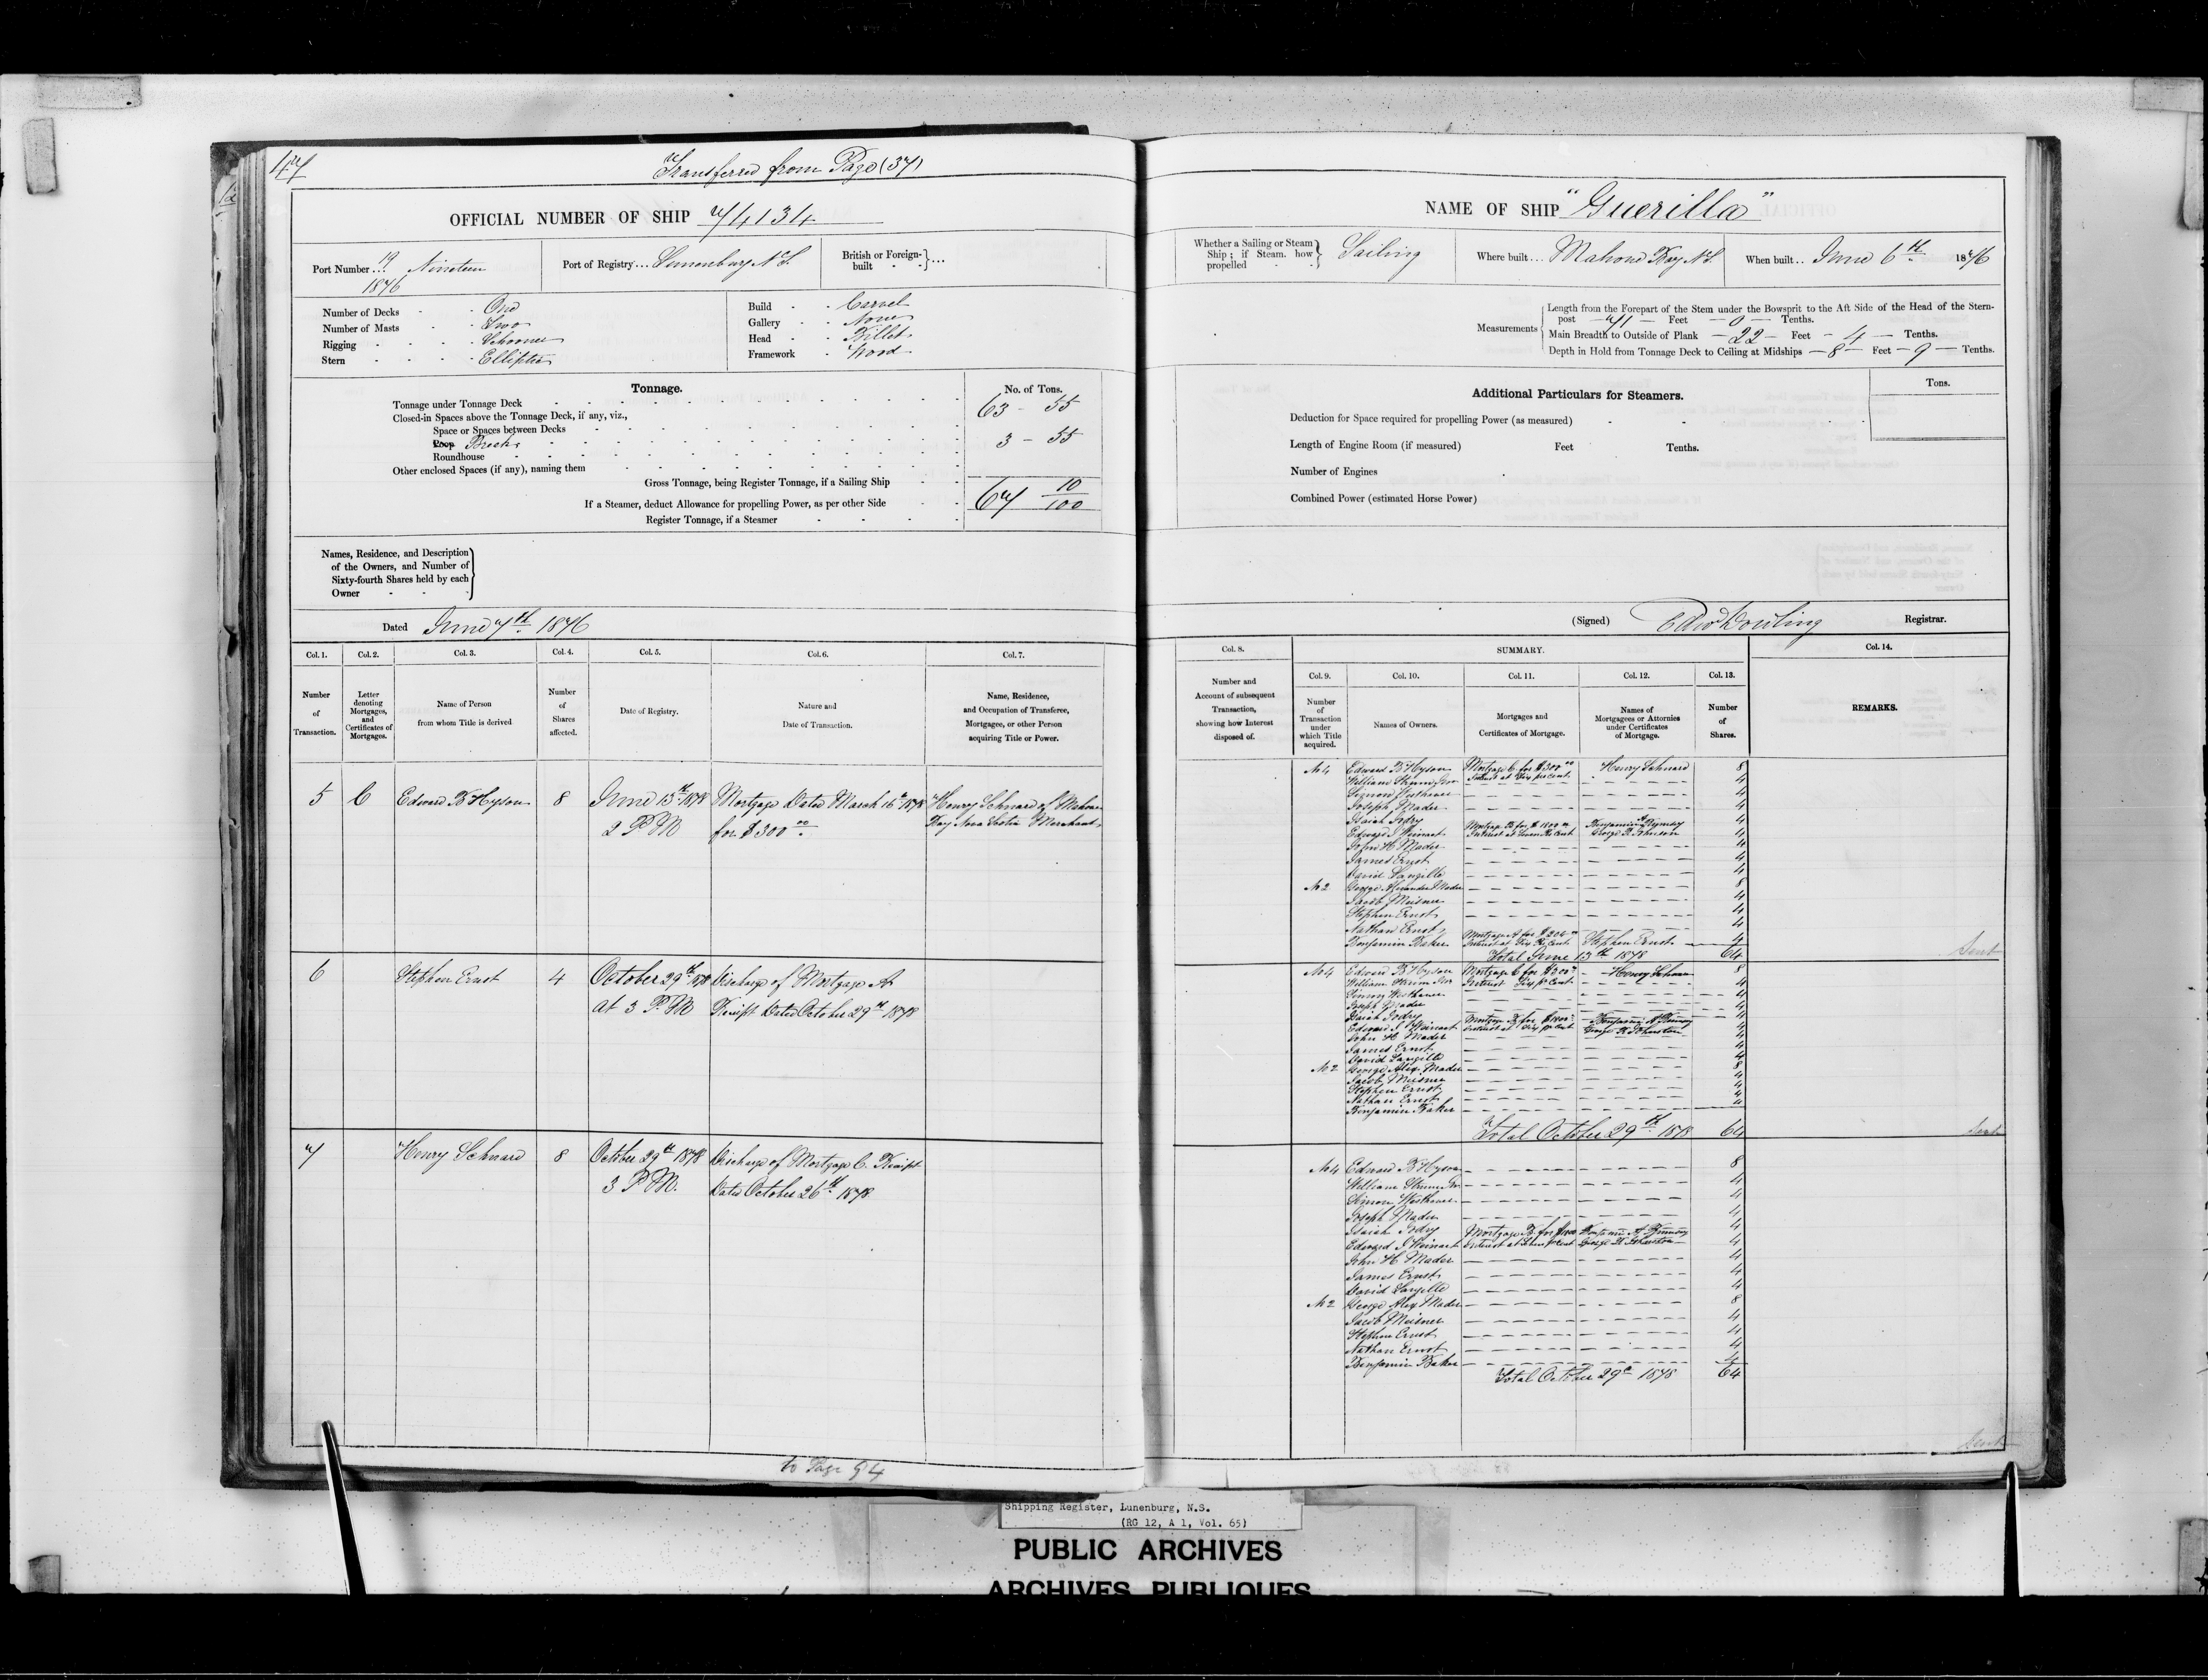 47
Transferred from Page (37)
OFFICIAL NUMBER OF SHIP 74134
Port Number... 19 Nineteen
1876
Port of Registry... Lunenburg N.S.
British or Foreign-built } ...
Number of Decks - - One
Number of Masts - - Two
Rigging - - - - Schooner
Stern - - - - Elliptic
Build - - Carvel
Gallery - - None
Head - - Billet
Framework - Wood
Tonnage.
No. of Tons.
Tonnage under Tonnage Deck 63 - 55
Closed-in Spaces above the Tonnage Deck, if any, viz.,
Space or Spaces between Decks
Poop Break 3 - 55
Roundhouse
Other enclosed Spaces (if any), naming them
Gross Tonnage, being Register Tonnage, if a Sailing Ship
67 10/100
If a Steamer, deduct Allowance for propelling Power, as per other Side
Register Tonnage, if a Steamer
Names, Residence, and Description
of the Owners, and Number of
Sixty-fourth Shares held by each
Owner
Dated June 7th 1876
Col. 1. Col. 2. Col. 3. Col. 4. Col. 5. Col. 6. Col. 7.
Number of Transaction.
Letter denoting Mortgages, and Certificates of Mortgages.
Name of Person from whom Title is derived
Number of Shares affected.
Date of Registry.
Nature and Date of Transaction.
Name, Residence, and Occupation of Transferee, Mortgagee, or other Person acquiring Title or Power.
5 C Edward B Hyson 8 June 13th 1878 Mortgage Dated March 16th 1878 Henry Schnard of Mahone
2 P M for $300 00 Bay Nova Scotia Merchant
6 Stephen Ernst 4 October 29th 1878 Discharge of Mortgage A
at 3 P.M Receipt Dated October 29th 1878
7 Henry Schnard 8 October 29th 1878 Discharge of Mortgage C. Receipt
3 P M. Dated October 26th 1878
to Page 94
NAME OF SHIP "Guerilla"
Whether a Sailing or Steam Ship; if Steam, how propelled } Sailing
Where built... Mahone Bay N.S.
When built.. June 6th 1876
Measurements
Length from the Forepart of the Stem under the Bowsprit to the Aft Side of the Head of the Stern-
post — 71 — Feet — 0 — Tenths.
Main Breadth to Outside of Plank — 22 — Feet — 4 — Tenths.
Depth in Hold from Tonnage Deck to Ceiling at Midships — 8 — Feet — 9 — Tenths.
Additional Particulars for Steamers.
Tons.
Deduction for Space required for propelling Power (as measured)
Length of Engine Room (if measured) Feet Tenths.
Number of Engines
Combined Power (estimated Horse Power)
(Signed) Edw Dowling Registrar.
Col. 8. SUMMARY. Col. 14.
Col. 9. Col. 10. Col. 11. Col. 12. Col. 13.
Number and Account of subsequent Transaction, showing how Interest disposed of.
Number of Transaction under which Title acquired.
Names of Owners.
Mortgages and Certificates of Mortgage.
Names of Mortgagees or Attornies under Certificates of Mortgage.
Number of Shares.
REMARKS.
No 4 Edward B Hyson Mortgage C for $300 00 Henry Schnard 8
William Strum Jnr Interest at Six per cent 4
Simon Westhaver 4
Joseph Mader 4
Isaiah Jodry 4
Edward J Weinart Mortgage B for $1800 00 Benjamin 4
Interest at Seven Per Cent George H Johnston
John H Mader 4
James Ernst 4
David Langille 4
No 2 George Alexander Mader 8
Jacob Meisner 4
Stephen Ernst 4
Nathan Ernst 4
Benjamin Baker Mortgage A for Stephen Ernst 4
Interest at Six Per Cent
Total June 13th 1878 64
Sent
No 4 Edward B Hyson Mortgage C for $300 Henry Schnard 8
William Strum Jnr Interest Six pr Cent 4
Simon Westhaver 4
Joseph Mader 4
Isaiah Jodry Mortgage B for Benjamin A 4
Edward J Weinart Interest at pr Cent George H Johnston 4
John H Mader 4
James Ernst 4
David Langille 4
No 2 George Alex. Mader 8
Jacob Meisner 4
Stephen Ernst 4
Nathan Ernst 4
Benjamin Baker 4
Total October 29th 1878 64
Sent
No 4 Edward B Hyson 8
William Strum Jnr 4
Simon Westhaver 4
Joseph Mader 4
Isaiah Jodry Mortgage B for Benjamin A 4
Edward J Weinart Interest at Seven pr Cent George H Johnston 4
John H Mader 4
James Ernst 4
David Langille 4
No 2 George Alex Mader 8
Jacob Meisner 4
Stephen Ernst 4
Nathan Ernst 4
Benjamin Baker 4
Total October 29th 1878 64
Sent
Shipping Register, Lunenburg, N.S.
(RG 12, A 1, Vol. 65)
PUBLIC ARCHIVES
ARCHIVES PUBLIQUES